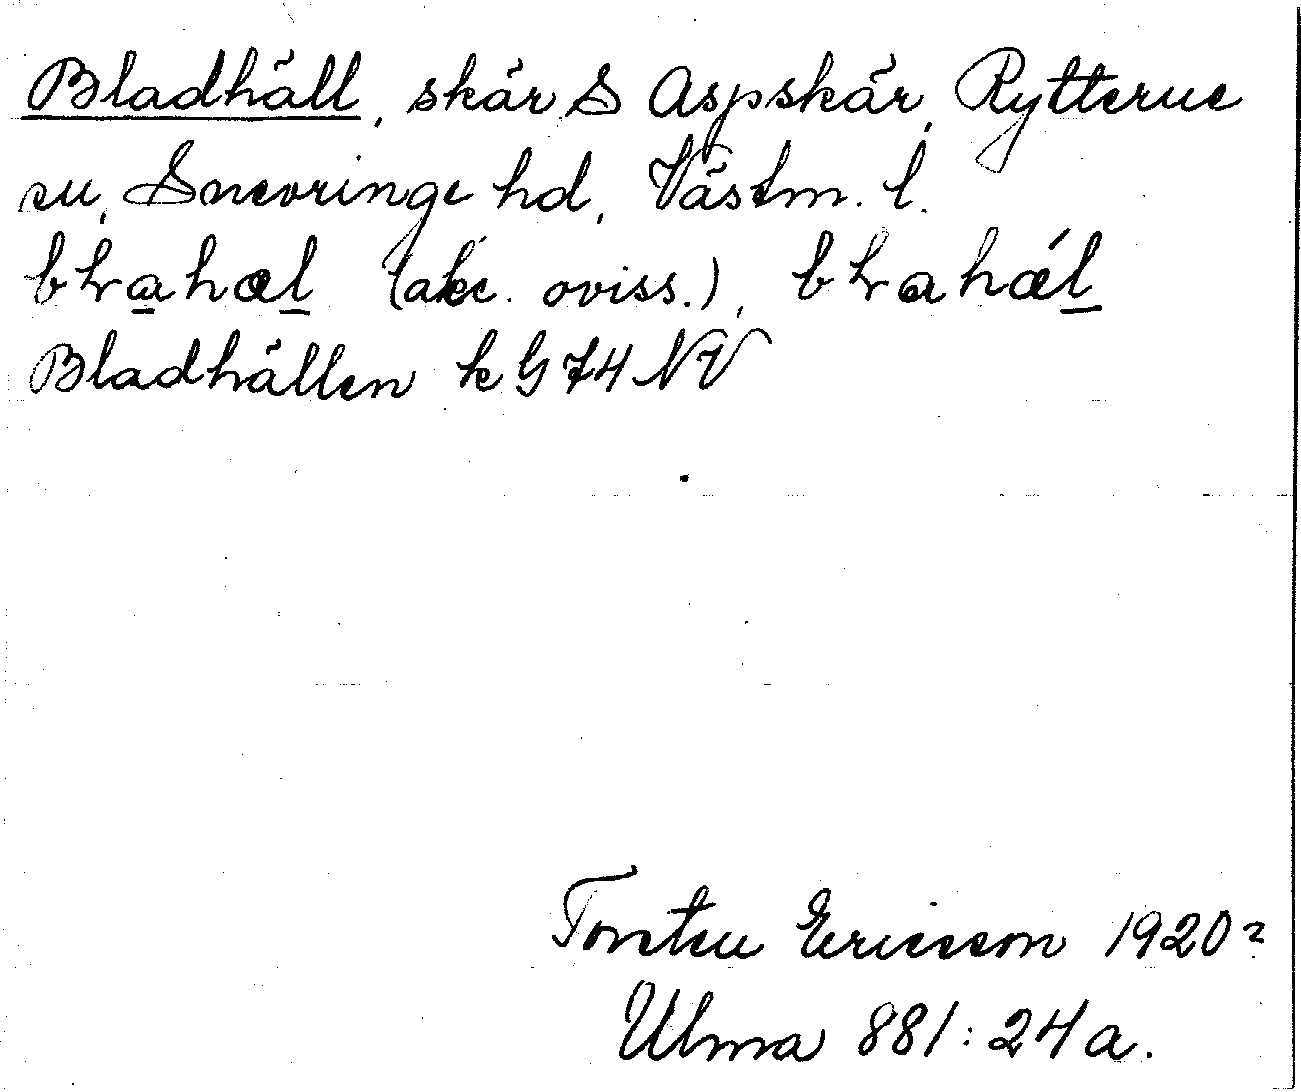 Bladhäll, skär S Aspskär, Rytterne
sn, Snevringe hd, Västm. l.
bɽahæl (akc. oviss.), bɽahǽl
Bladhällen k G 74 NV
Torsten Ericsson 1920?
Ulma 881:24a.